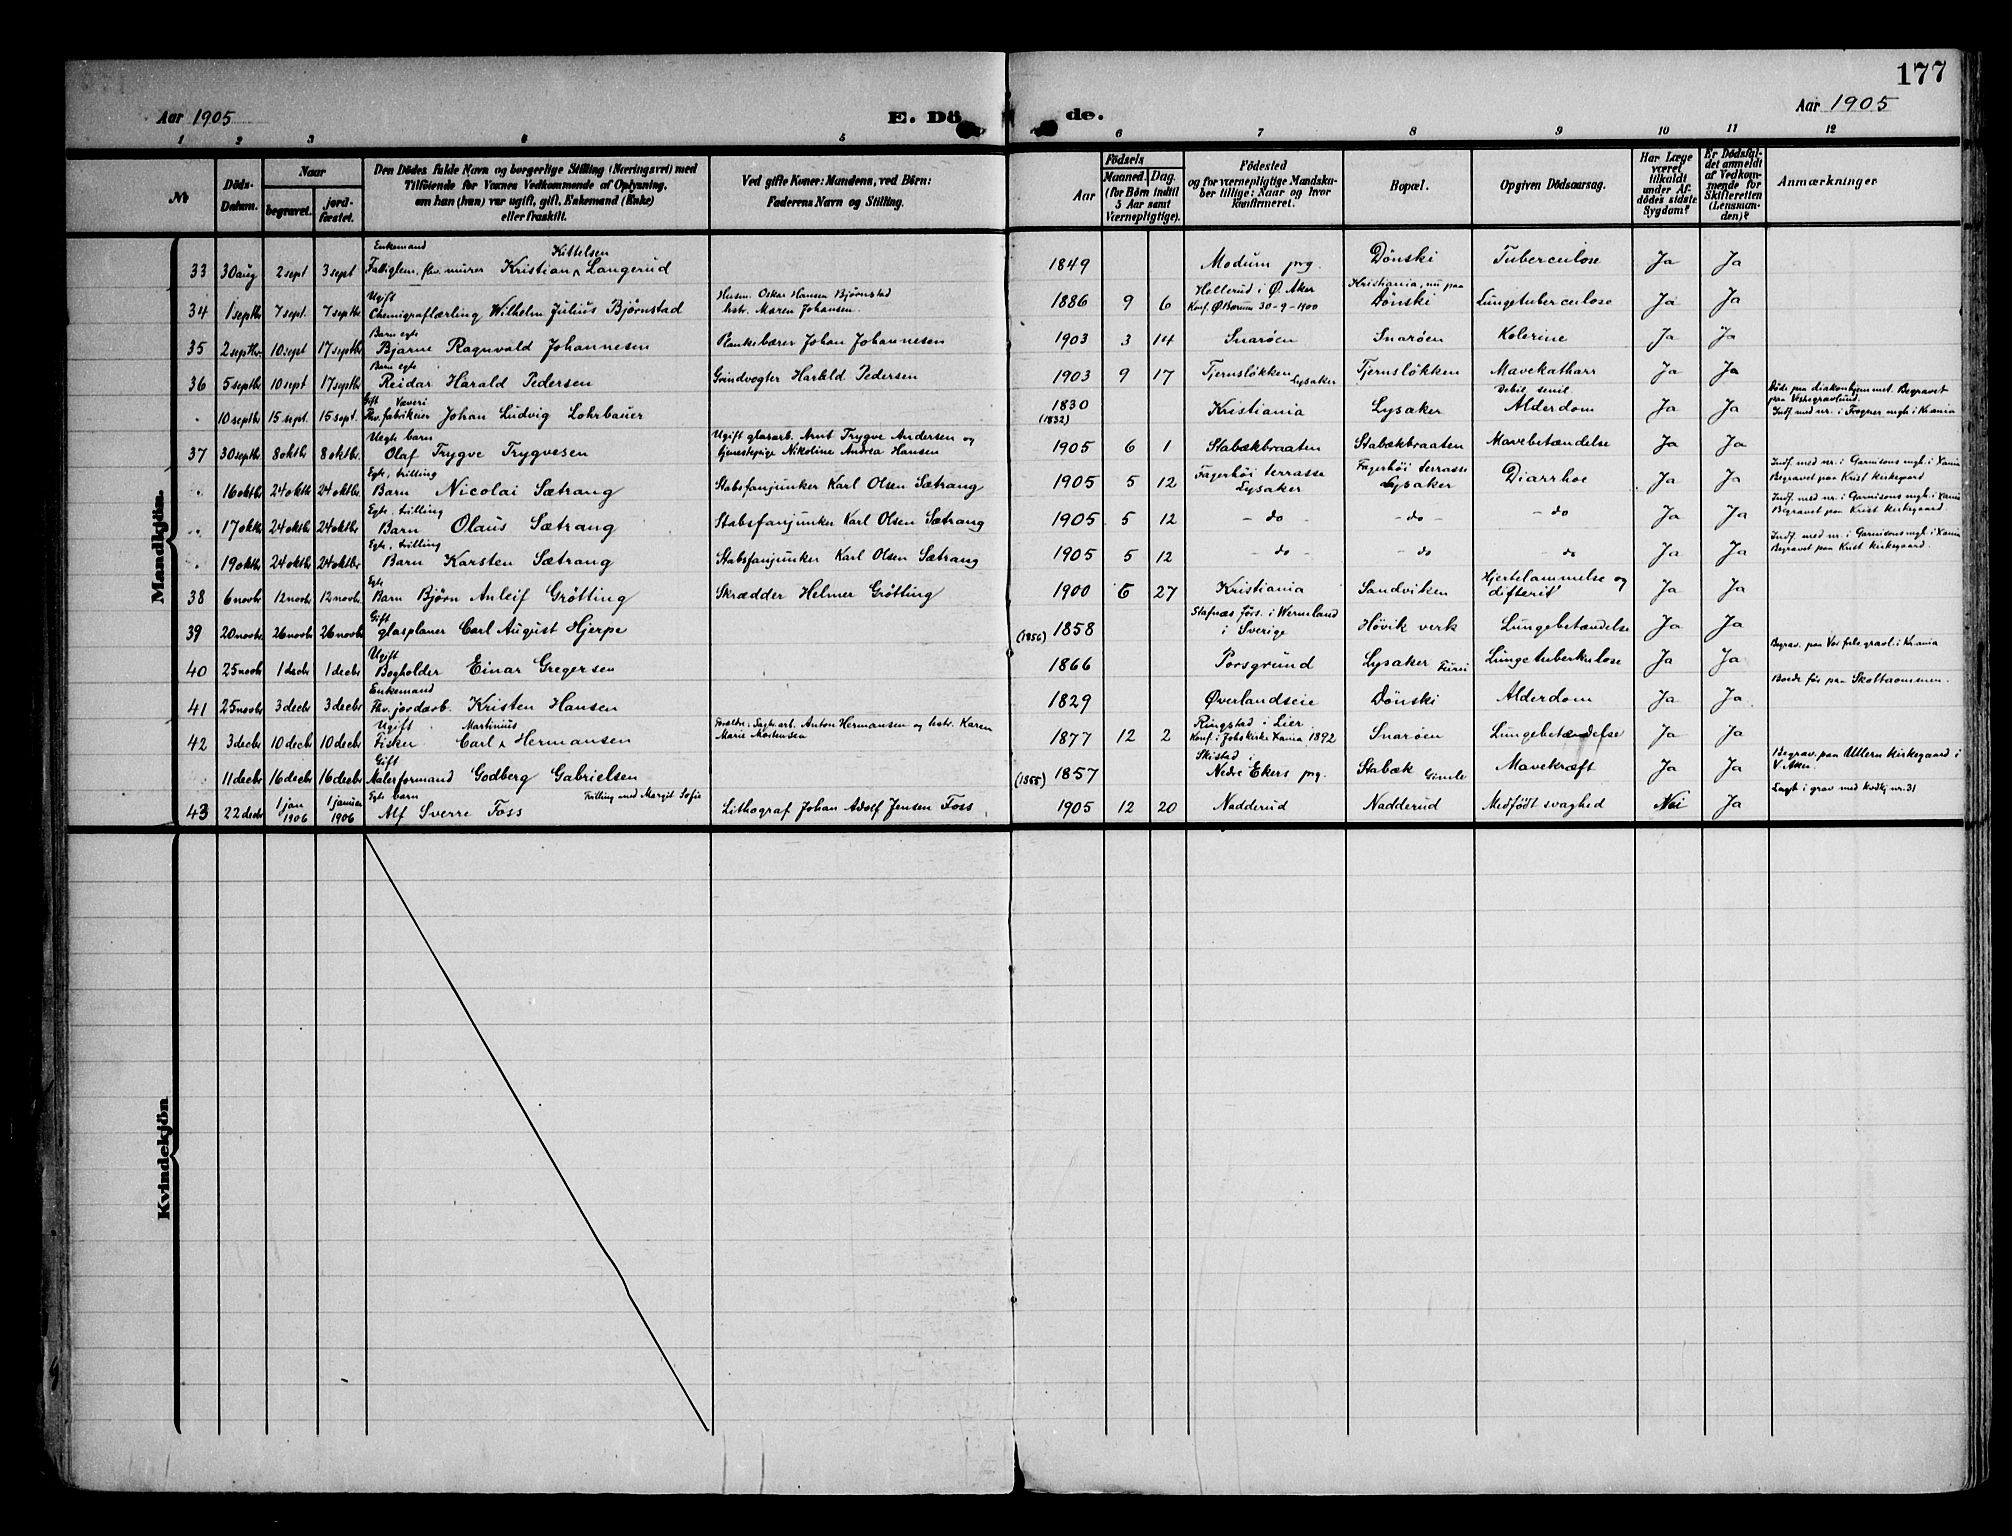 177
Aar 1905
E. Dö de.
Aar 1905
1 2 3 4 5 6 7 8 9 10 11 12
№
Döds-Datum.
Naar
begravet.
jord-fæstet.
Den Dödes fulde Navn og borgerlige Stilling (Næringsvei) med
Tilföiende for Voxnes Vedkommende af Oplysning,
om han (hun) var ugift, gift, Enkemand (Enke)
eller fraskilt.
Ved gifte Koner: Mandens, ved Börn:
Faderens Navn og Stilling.
Födsels
Aar
Maaned. Dag.
(for Börn indtil
5 Aar samt
Værnepligtige).
Födested
og for værnepligtige Mandska-
ber tillige: Naar og hvor
konfirmeret.
Bopæl.
Opgiven Dödsaarsag.
Har Læge
været
tilkaldt
under Af-
dödes sidste
Sygdom?
Er Dödsfal-
det anmeldt
af Vedkom-
mende for
Skifteretten
(Lensman-
den)?
Anmærkninger
Mandkjön.
33 30 aug 2 sept 3 sept Enkemand Fattiglem, fhv. murer Kristian Kittelsen Langerud 1849 Modum prg. Dönski Tuberculose Ja Ja
34 1 septbr 7 sept. 7 septbr Ugift Chemigraflærling Wilhelm Julius Bjørnstad Husm. Oskar Hansen Bjørnstad hstr. Maren Johansen. 1886 9 6 Hellerud i Ø. Aker Konf. Ø Bærum 30-9-1900 Kristiania, nu paa Dönski Lungetuberculose Ja Ja
35 2 septbr. 10 sept 17 septbr Barn egte Bjarne Ragnvald Johannesen Plankebærer Johan Johannesen 1903 3 14 Snarøen Snarøen Kolerine Ja Ja
36 5 septbr 10 sept 17 septbr Barn egte Reidar Harald Pedersen Grindvogter Harald Pedersen 1903 9 17 Tjernsløkken Lysaker Tjernsløkken Mavekatharr Ja Ja
" 10 septbr 15 sept. 15 sept. Gift Væveri Fhv. fabrikeier Johan Ludvig Lohrbauer 1830 (1832) Kristiania Lysaker Debil. senil Alderdom Ja Ja Döde paa diakonhjemmet. Begravet paa Vestregravlund. Indf med nr. i Frogner mgh. i Krania
37 30 septbr 8 oktbr 8 oktbr. Uegte barn Olaf Trygve Trygvesen Ugift glasarb. Arnt Trygve Andersen og tjenestepige Nikoline Andrea Hansen 1905 6 1 Stabækbraaten Stabækbraaten Mavebetændelse Ja Ja
" 16 oktbr 24 oktbr 24 oktbr. Egte, trilling Barn Nicolai Sætrang Stabsfanjunker Karl Olsen Sætrang 1905 5 12 Fagerhøi terrasse Lysaker Fagerhøi terrasse Lysaker Diarrhoe Ja Ja Indf med nr. i Garnisons mgh. i Xania Begravet paa Krist kirkegaard
" 17 oktbr 24 oktbr. 24 oktbr. Egte, trilling Barn Olaus Sætrang Stabsfanjunker Karl Olsen Sætrang 1905 5 12 - do - - do - - do Ja Ja Indf. med nr. i Garnisons mgh. i Xania Begravet paa Krist kirkegaard.
" 19 oktbr 24 oktbr 24 oktbr Egte, trilling Barn Karsten Sætrang Stabsfanjunker Karl Olsen Sætrang 1905 5 12 - do - do - do Ja Ja Indf. med nr. i Garnisons mgh. i Xania Begravet paa Krist kirkegaard.
38 6 novbr 12 novbr 12 novbr. Egte Barn Bjørn Anleif Grøtting Skrædder Helmer Grøtting 1900 6 27 Kristiania Sandviken Hjertelammelse og difterit Ja Ja
39 20 novbr. 26 novbr 26 novbr. Gift glasplaner Carl August Hjerpe (1856) 1858 Stafnæs förs. i Wermland i Sverige Høvik verk Lungebetændelse Ja Ja
40 25 novbr 1 decbr 1 decbr Ugift Bogholder Einar Gregersen 1866 Porsgrund Lysaker Furu Lungetuberkulose Ja Ja Begrav. paa Vor frels. gravl. i Krania
41 25 novbr 3 decbr 3 decbr Enkemand Fhv. jordarb. Kristen Hansen 1829 Øverlandseie Dönski Alderdom Ja Ja Boede før paa Skoltaommen.
42 3 decbr 10 decbr 10 decbr Ugift Fisker Carl Martinius Hermansen Forældre: Sagbr.arb. Anton Hermansen og hstr. Karen Marie Mortensen 1877 12 2 Ringstad i Lier Konf. i Jobs kirke Xania 1892 Snarøen Lungebetændelse Ja Ja
" 11 decbr 16 decbr 16 decbr Gift Malerformand Godberg Gabrielsen (1855) 1857 Skistad i Nedre Ekers prg. Stabæk Gimle Mavekræft Ja Ja Begrav. paa Ullern kirkegaard i V. Aker
43 22 decbr 1 jan 1906 1 januar 1906 Egte barn Trilling med Margit Sofie Alf Sverre Foss Lithograf Johan Adolf Jensen Foss 1905 12 20 Nadderud Nadderud Medfödt svaghed Nei Ja Lagt i grav med kvdkj nr. 31
Kvindekjön